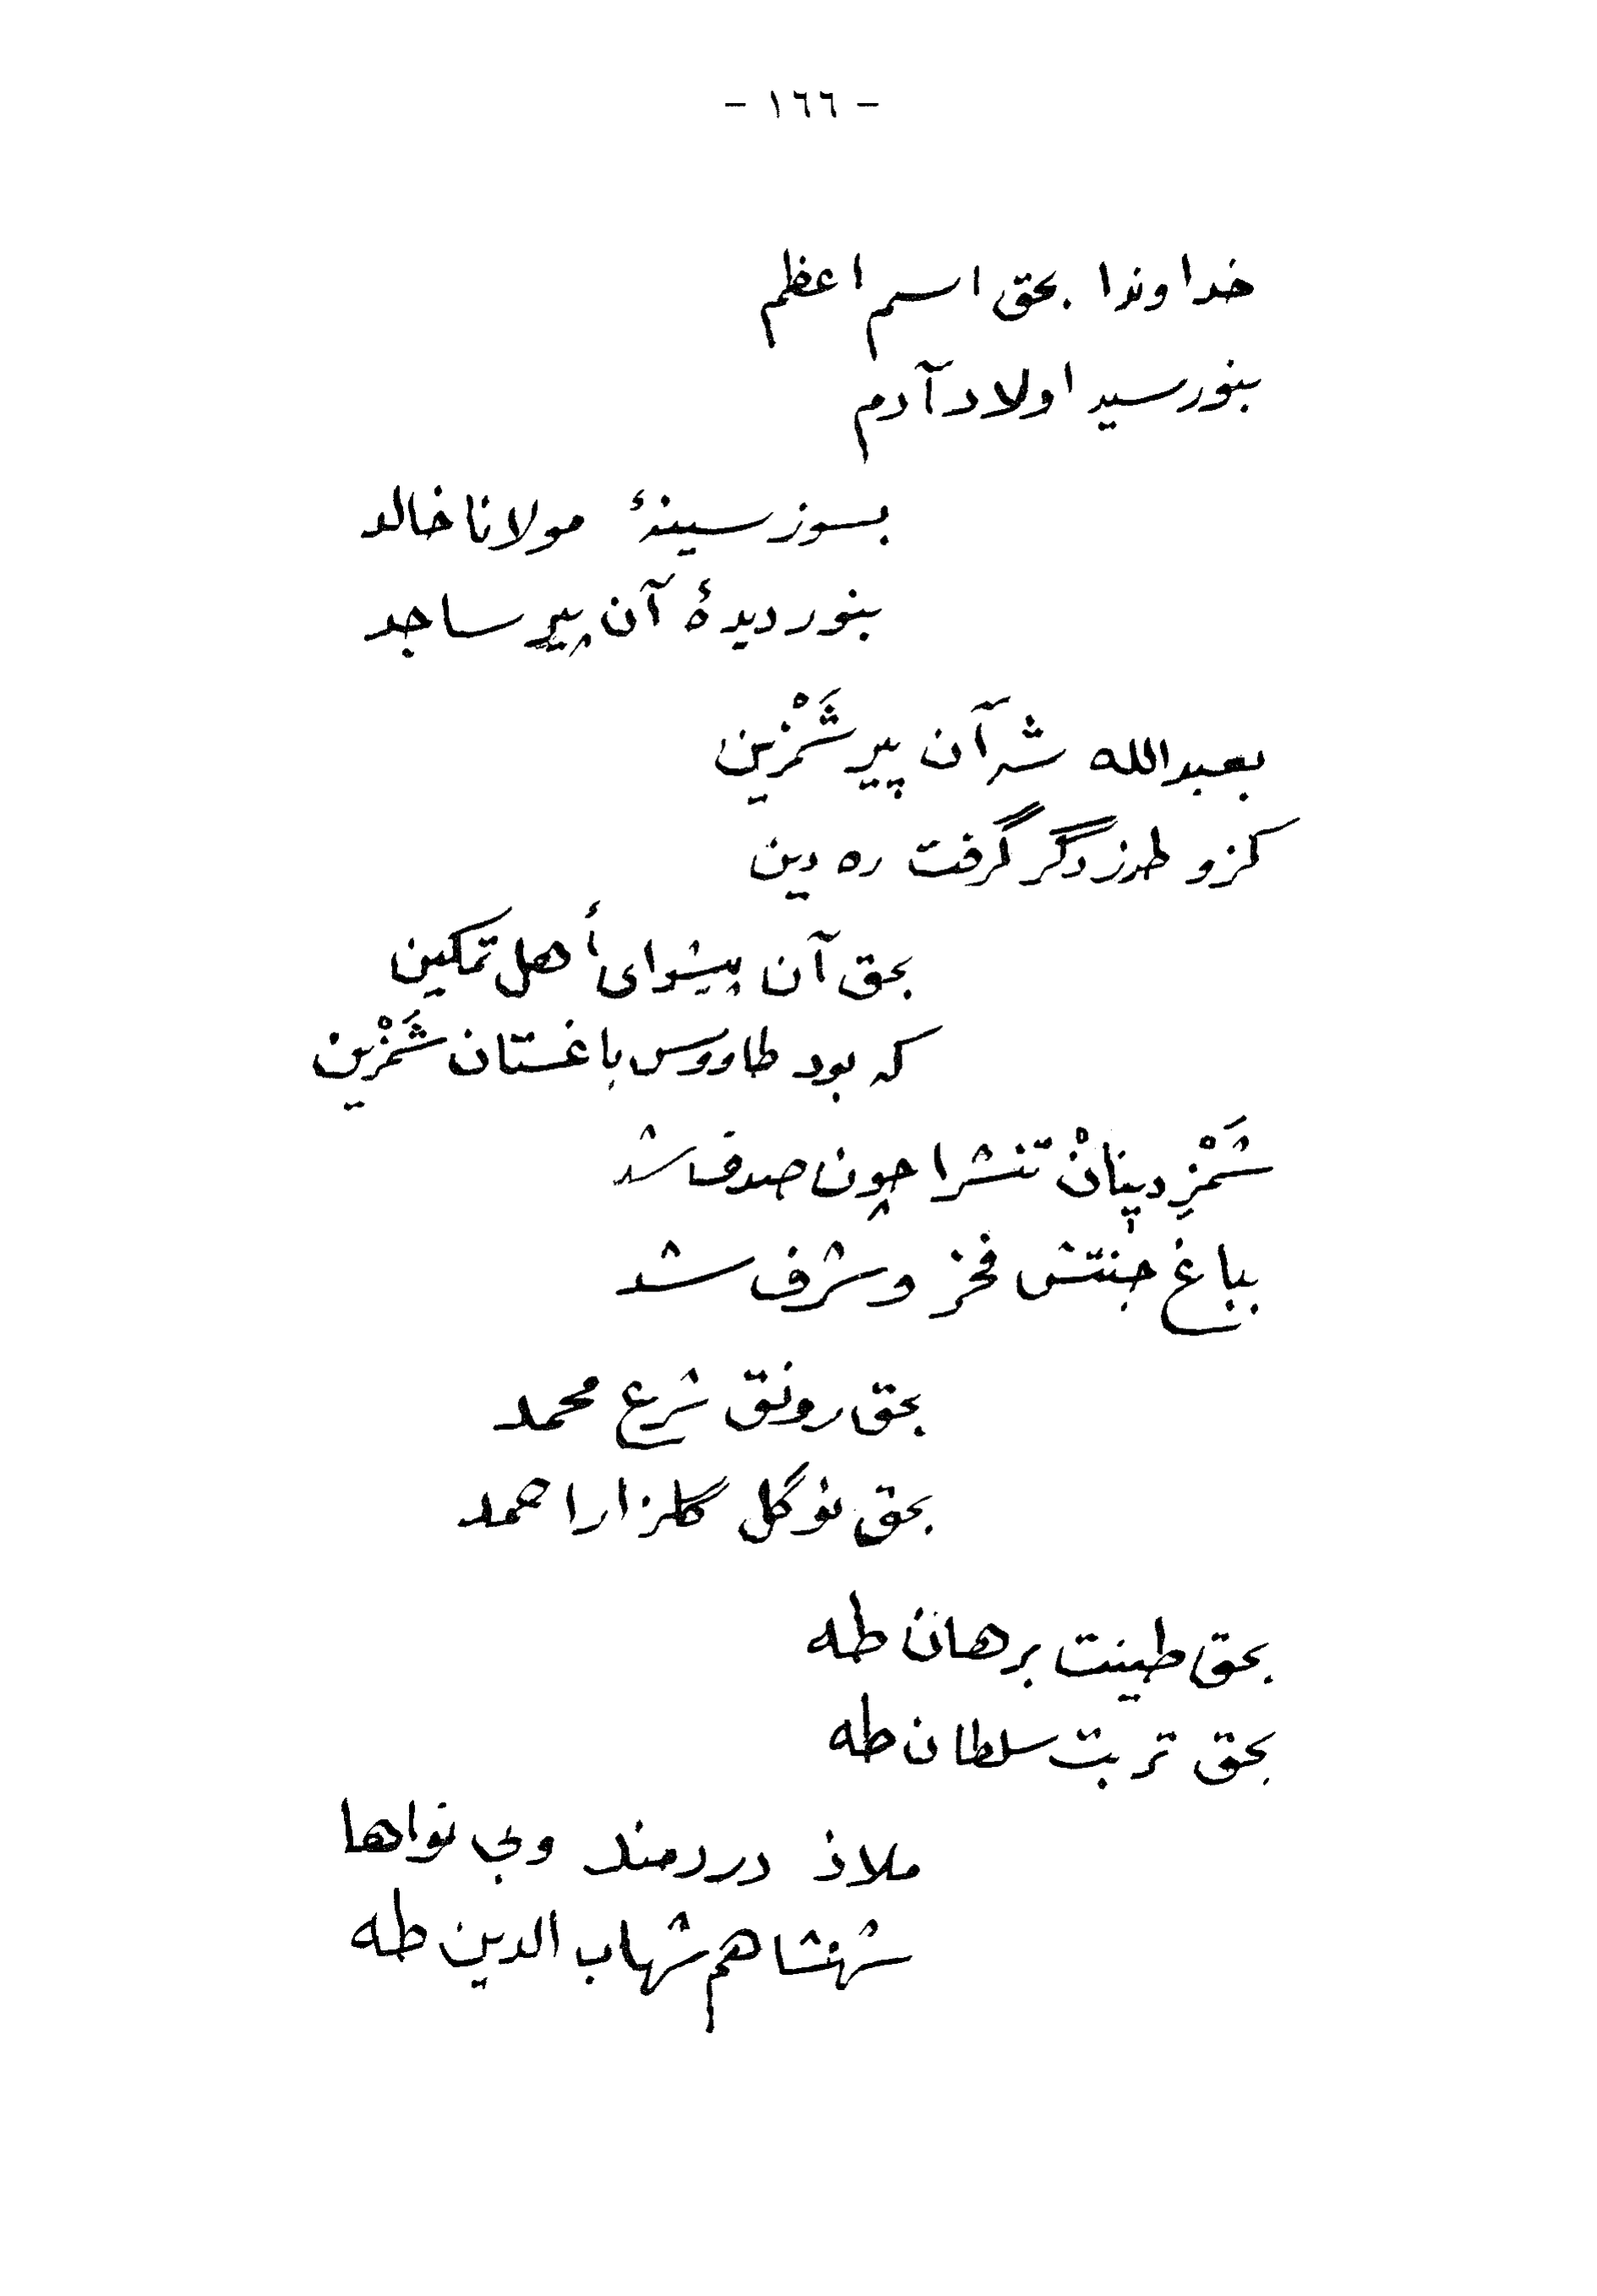 - ١٦٦ -
خداوندا بحق اسم اعظم
بنور سید اولاد آدم
بسوز سینهٔ مولانا خالد
بنور دیدهٔ آن پیر ساجد
بعبدالله شه آن پیر شَمْزین
کزو طرز دگر گرفت ره دین
بحق آن پیشوای أهل تمکین
که بود طاووس باغستان شَمْزین
شَمْزِدینانْ تنشرا چون صدف شد
بباغ جنتش فخز و شرف شد
بحق رونق شرع محمد
بحق نوگل گلزار احمد
بحق طینت برهان طه
بحق تربت سلطان طه
ملاذ دردمند و بی نواها
شهنشاهم شهاب الدین طه